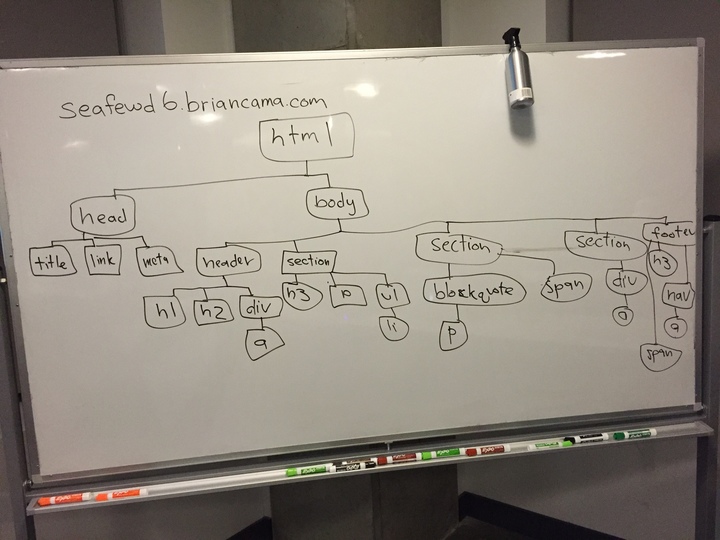 seafewd6.briancama.com
html
head
body
title
link
meta
header
section
section
section
footer
h1
h2
div
h3
p
ul
blockquote
span
div
h3
nav
a
li
p
a
a
span